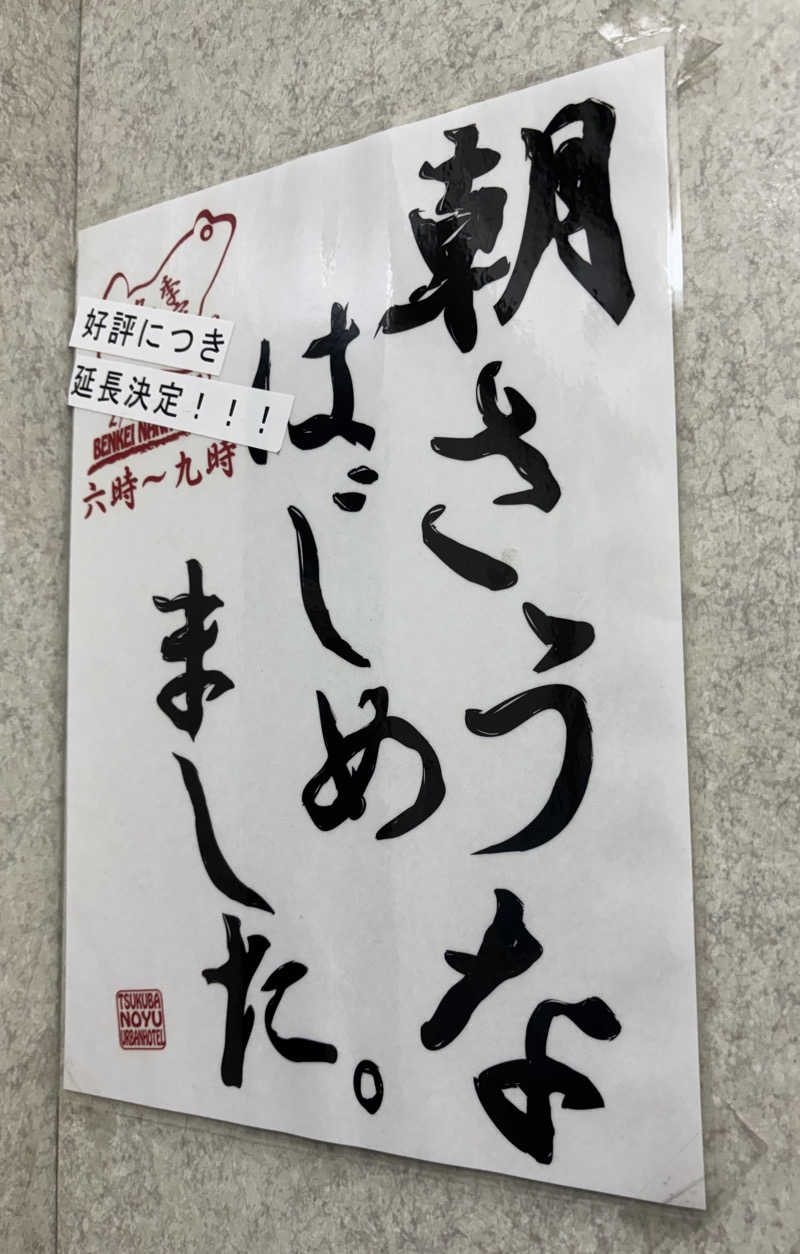 朝さうな
はじめ
ました。
好評につき
延長決定！！！
BENKEI
六時～九時
TSUKUBA
NOYU
URBANHOTEL